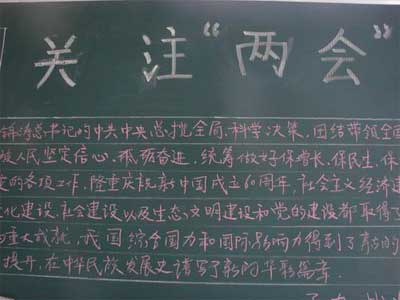 关注“两会”
锦涛总书记的中共中央总揽全局,科学决策,团结带领全国
族人民坚定信心,砥砺奋进,统筹做好保增长、保民生、保
定的各项工作,隆重庆祝新中国成立60周年,社会主义经济建
文化建设、社会建设以及生态文明建设和党的建设都取得了
重大成就,我国综合国力和国际影响力得到了新的
提升,在中华民族发展史谱写了新的华彩篇章.